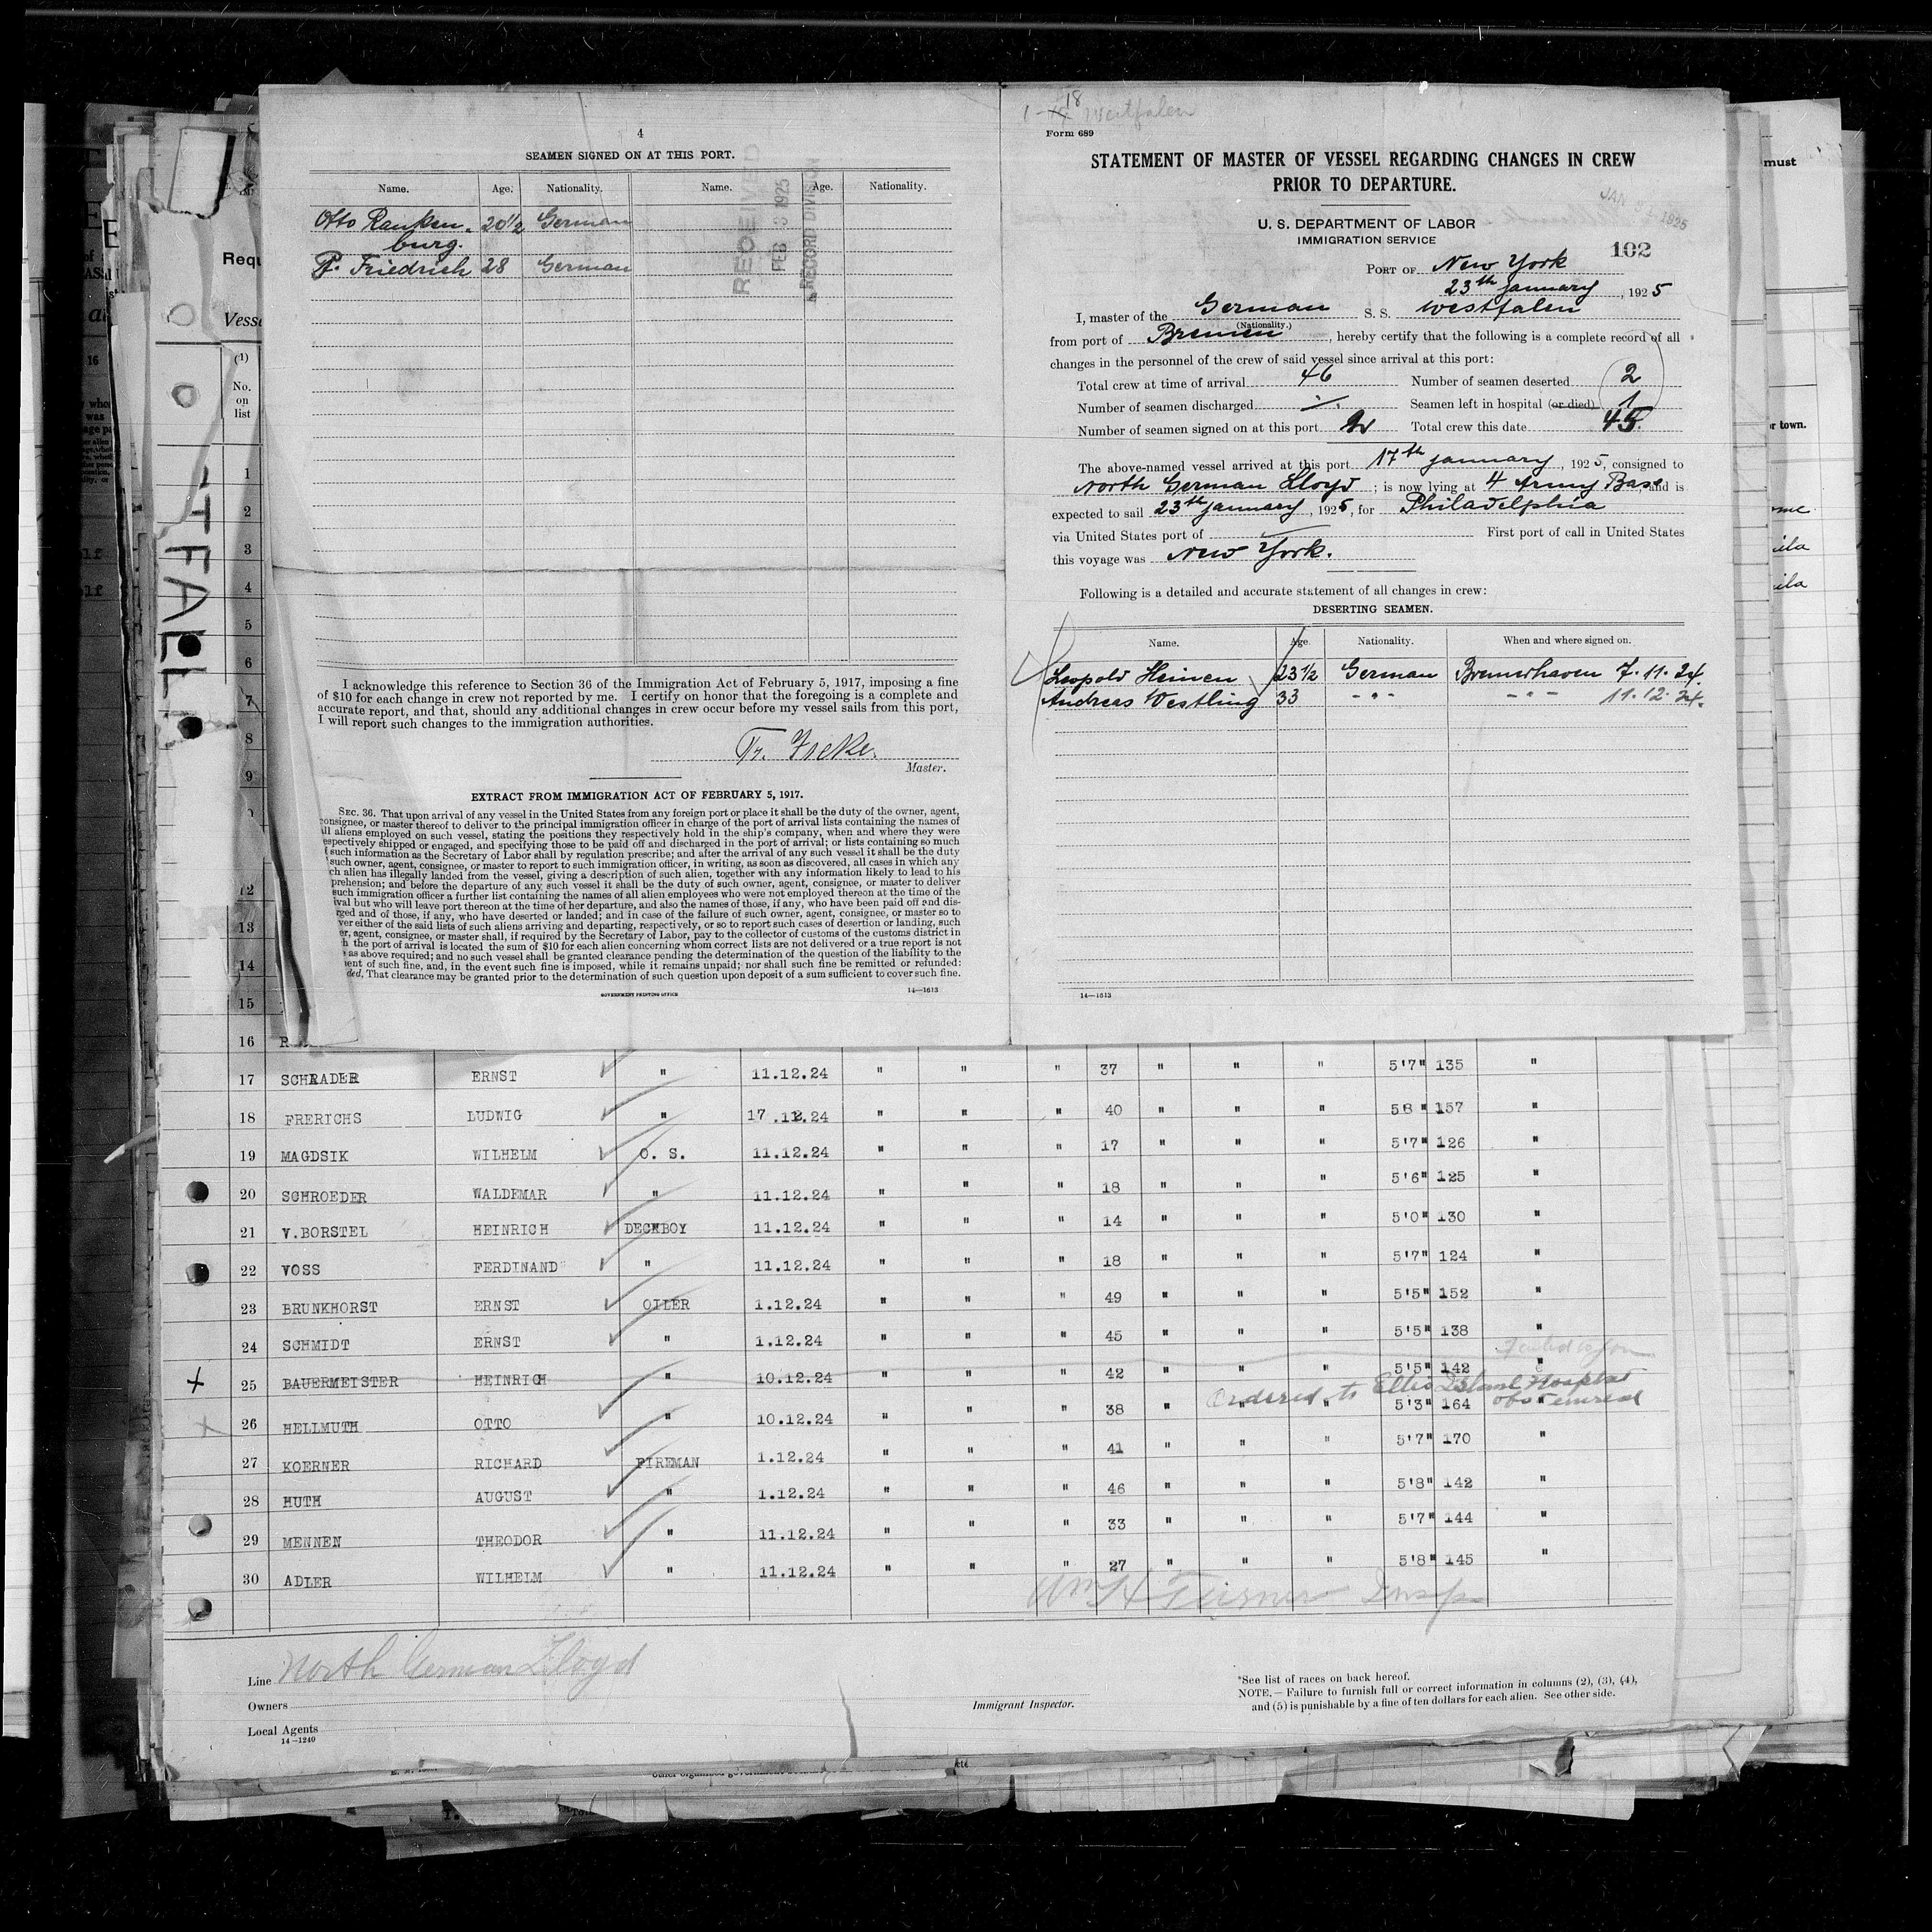 4
SEAMEN SIGNED ON AT THIS PORT.
Name. Age. Nationality. Name. Age. Nationality.
Otto Ranken- 20 1/2 German
burg.
P. Friedrich 28 German
RECEIVED
FEB 3 1925
RECORD DIVISION
I acknowledge this reference to Section 36 of the Immigration Act of February 5, 1917, imposing a fine
of $10 for each change in crew not reported by me. I certify on honor that the foregoing is a complete and
accurate report, and that, should any additional changes in crew occur before my vessel sails from this port,
I will report such changes to the immigration authorities.
Fr. Ficke.
Master.
EXTRACT FROM IMMIGRATION ACT OF FEBRUARY 5, 1917.
SEC. 36. That upon arrival of any vessel in the United States from any foreign port or place it shall be the duty of the owner, agent,
consignee, or master thereof to deliver to the principal immigration officer in charge of the port of arrival lists containing the names of
all aliens employed on such vessel, stating the positions they respectively hold in the ship's company, when and where they were
espectively shipped or engaged, and specifying those to be paid off and discharged in the port of arrival; or lists containing so much
f such information as the Secretary of Labor shall by regulation prescribe; and after the arrival of any such vessel it shall be the duty
such owner, agent, consignee, or master to report to such immigration officer, in writing, as soon as discovered, all cases in which any
ch alien has illegally landed from the vessel, giving a description of such alien, together with any information likely to lead to his
prehension; and before the departure of any such vessel it shall be the duty of such owner, agent, consignee, or master to deliver
such immigration officer a further list containing the names of all alien employees who were not employed thereon at the time of the
ival but who will leave port thereon at the time of her departure, and also the names of those, if any, who have been paid off and dis-
rged and of those, if any, who have deserted or landed; and in case of the failure of such owner, agent, consignee, or master so to
ver either of the said lists of such aliens arriving and departing, respectively, or so to report such cases of desertion or landing, such
er, agent, consignee, or master shall, if required by the Secretary of Labor, pay to the collector of customs of the customs district in
h the port of arrival is located the sum of $10 for each alien concerning whom correct lists are not delivered or a true report is not
as above required; and no vessel shall be granted clearance pending the determination of the question of the liability to the
ent of such fine, and, in the event such fine is imposed, while it remains unpaid; nor shall such fine be remitted or refunded:
ded, That clearance may be granted prior to the determination of such question upon deposit of a sum sufficient to cover such fine.
GOVERNMENT PRINTING OFFICE 14—1613
18
Westfalen
Form 689
STATEMENT OF MASTER OF VESSEL REGARDING CHANGES IN CREW
PRIOR TO DEPARTURE.
U. S. DEPARTMENT OF LABOR
IMMIGRATION SERVICE
102
PORT OF New York
23th January, 1925
I, master of the German S. S. Westfalen
(Nationality.)
from port of Bremen, hereby certify that the following is a complete record of all
changes in the personnel of the crew of said vessel since arrival at this port:
Total crew at time of arrival 46 Number of seamen deserted 2
Number of seamen discharged ./. Seamen left in hospital (or died) 1
Number of seamen signed on at this port 2 Total crew this date 45
The above-named vessel arrived at this port 17th January, 1925, consigned to
North German Lloyd; is now lying at 4 Army Base, and is
expected to sail 23th January, 1925, for Philadelphia
via United States port of First port of call in United States
this voyage was New York.
Following is a detailed and accurate statement of all changes in crew:
DESERTING SEAMEN.
Name. Age. Nationality. When and where signed on.
Leopold Heinen 23 1/2 German Bremerhaven 7.11.24.
Andreas Westling 33 - " - - " - 11.12.24.
14—1613
must
r town.
Requ
Vesse
(1)
No.
on
list
TFALL
1
2
3
4
5
6
7
8
9
12
13
14
15
16
17 SCHRADER ERNST " 11.12.24 " " " 37 " " " 5'7" 135 "
18 FRERICHS LUDWIG " 17.12.24 " " " 40 " " " 58" 157 "
19 MAGDSIK WILHELM O. S. 11.12.24 " " " 17 " " " 5'7" 126 "
20 SCHROEDER WALDEMAR " 11.12.24 " " " 18 " " " 5'6" 125 "
21 V.BORSTEL HEINRICH DECKBOY 11.12.24 " " " 14 " " " 5'0" 130 "
22 VOSS FERDINAND " 11.12.24 " " " 18 " " " 5'7" 124 "
23 BRUNKHORST ERNST OILER 1.12.24 " " " 49 " " " 5'5" 152 "
24 SCHMIDT ERNST " 1.12.24 " " " 45 " " " 5'5" 138 "
Failed to join
25 BAUERMEISTER HEINRICH " 10.12.24 " " " 42 " " " 5'5" 142 "
Ordered to Ellis Island Hospital
26 HELLMUTH OTTO " 10.12.24 " " " 38 " " " 5'3" 164 "
27 KOERNER RICHARD FIREMAN 1.12.24 " " " 41 " " " 5'7" 170 "
28 HUTH AUGUST " 1.12.24 " " " 46 " " " 5'8" 142 "
29 MENNEN THEODOR " 11.12.24 " " " 33 " " " 5'7" 144 "
30 ADLER WILHELM " 11.12.24 " " " 27 " " " 5'8" 145 "
Wm H Turner Insp
Line North German Lloyd
Owners
Local Agents
14—1240
Immigrant Inspector.
*See list of races on back hereof.
NOTE.—Failure to furnish full or correct information in columns (2), (3), (4),
and (5) is punishable by a fine of ten dollars for each alien. See other side.